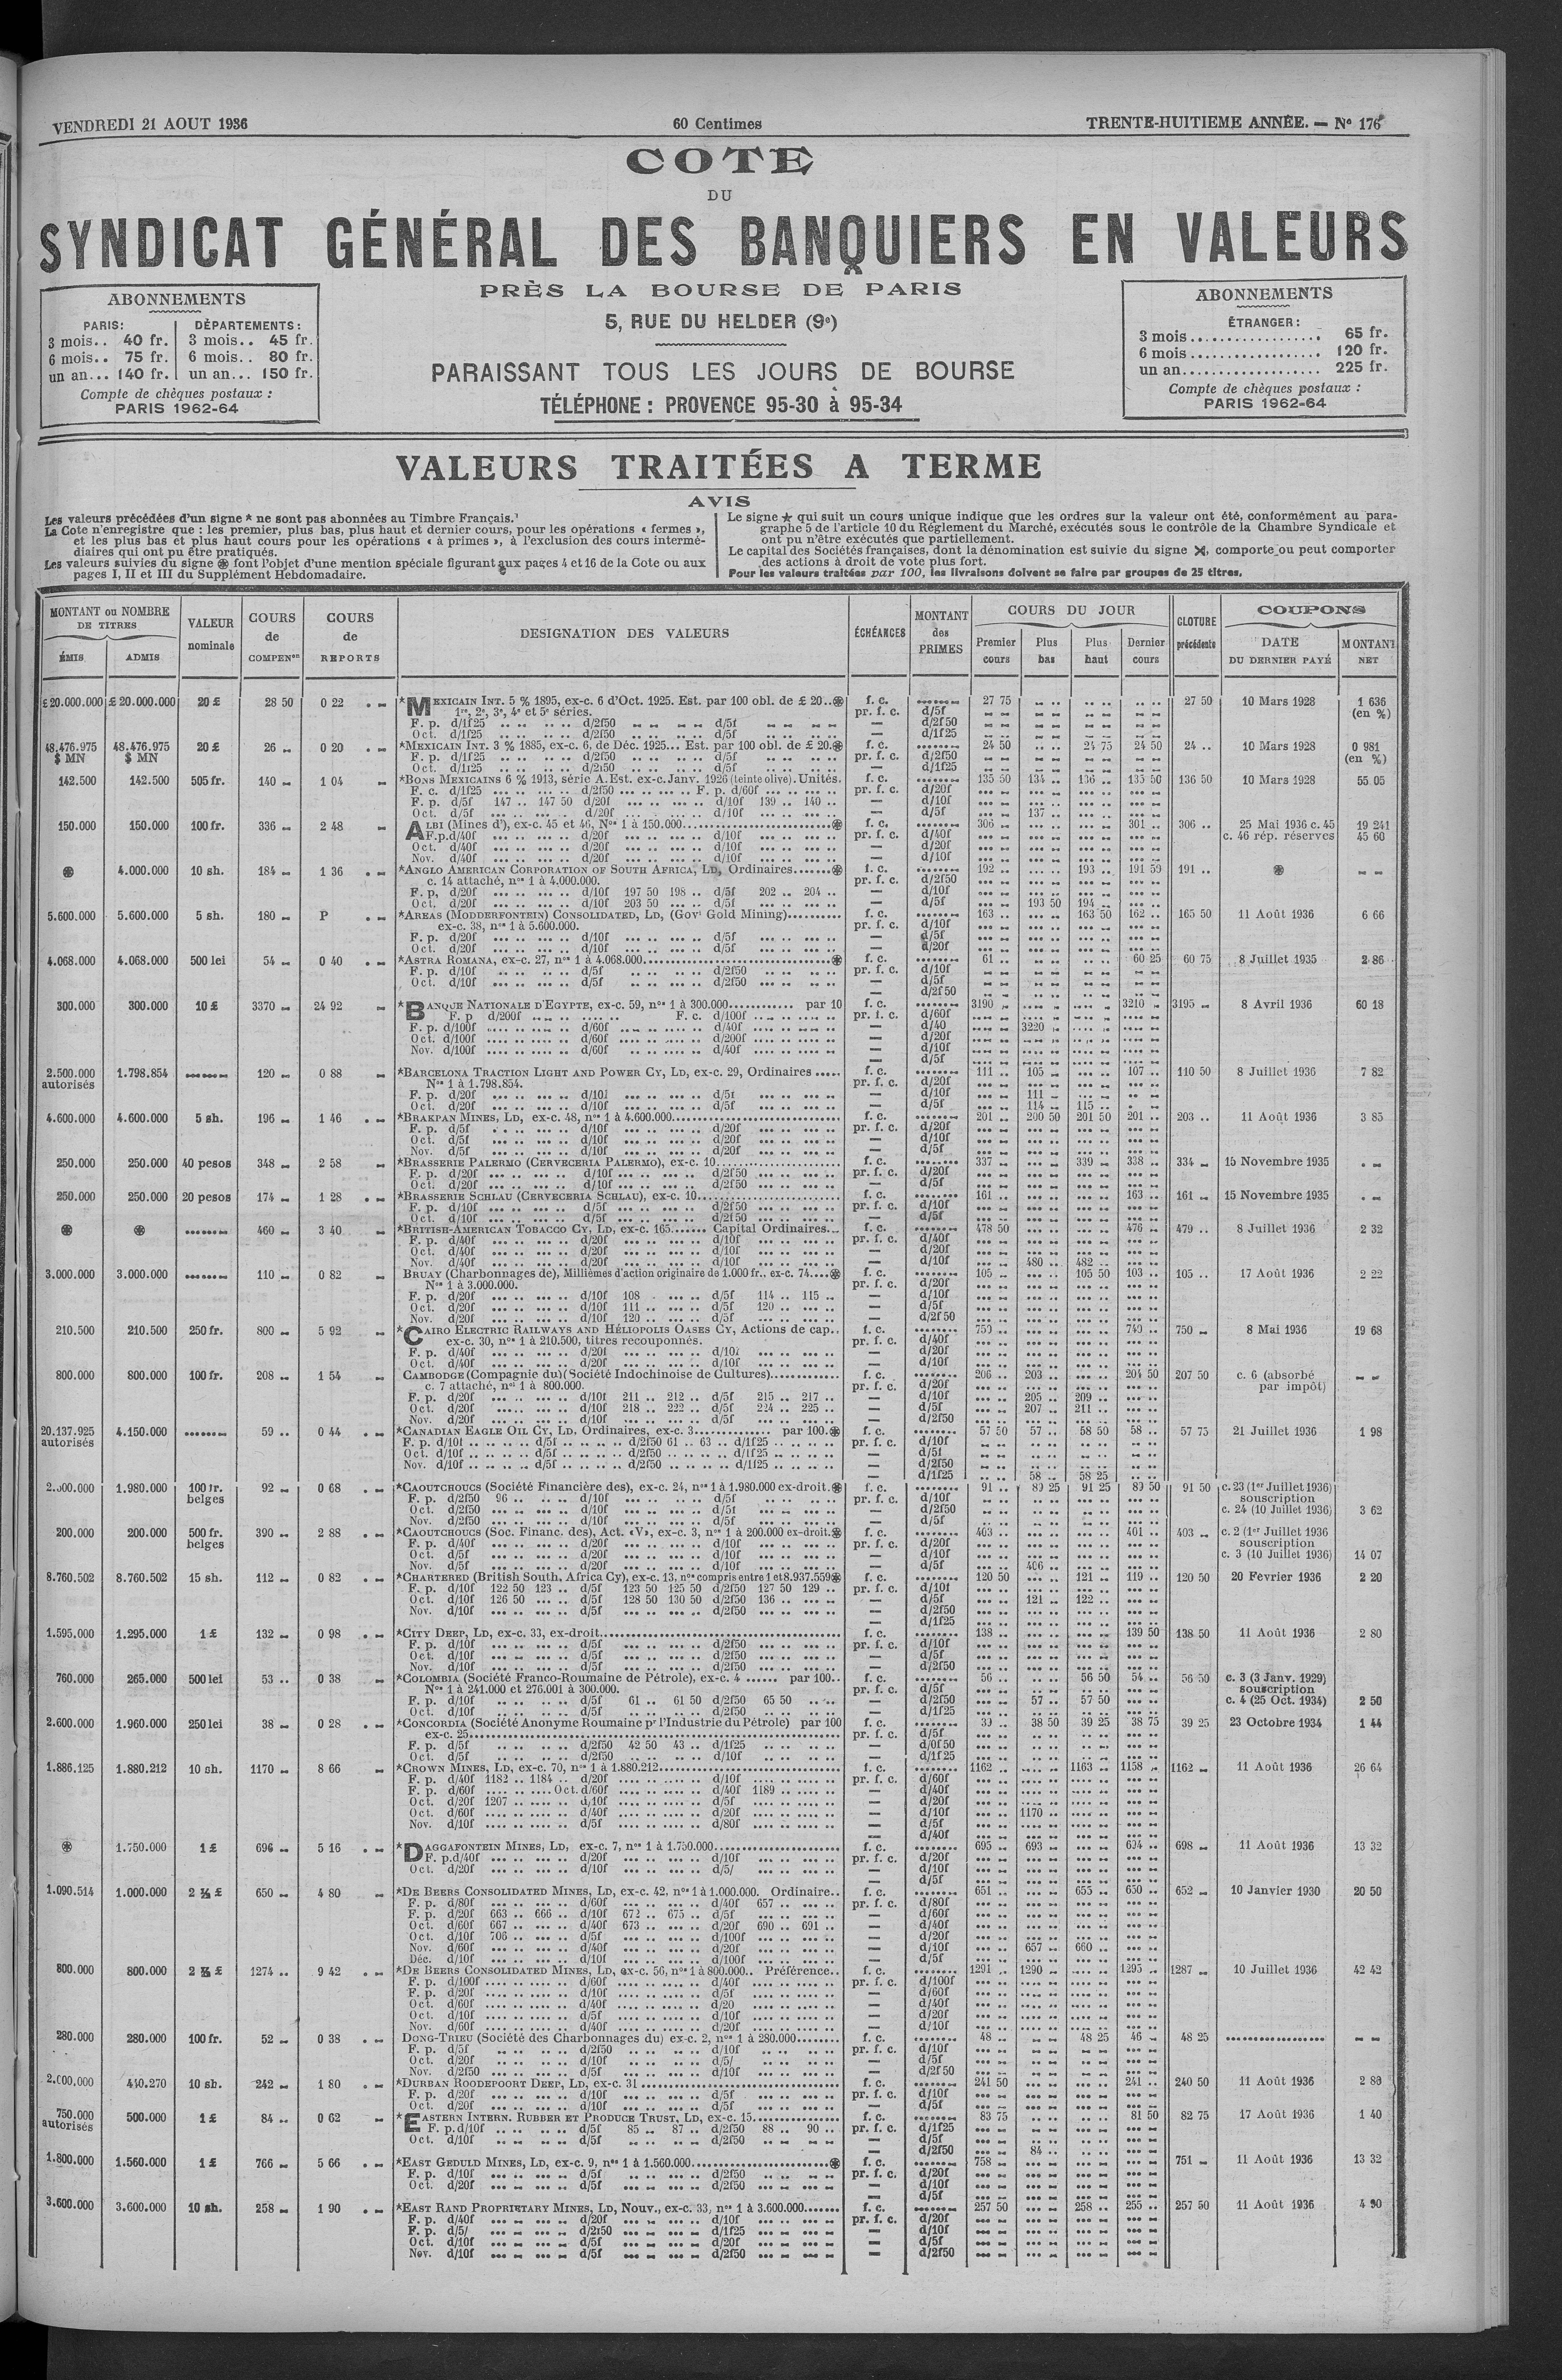 VENDREDI 21 AOUT 1936
60 Centimes
TRENTE-HUITIEME ANNÉE. — Nº 176
COTE
DU
SYNDICAT GÉNÉRAL DES BANQUIERS EN VALEURS
PRÈS LA BOURSE DE PARIS
5, RUE DU HELDER (9e)
PARAISSANT TOUS LES JOURS DE BOURSE
TÉLÉPHONE : PROVENCE 95-30 à 95-34
ABONNEMENTS
PARIS: DÉPARTEMENTS:
3 mois.. 40 fr. 3 mois.. 45 fr.
6 mois.. 75 fr. 6 mois.. 80 fr.
un an... 140 fr. un an... 150 fr.
Compte de chèques postaux :
PARIS 1962-64
ABONNEMENTS
ÉTRANGER:
3 mois................ 65 fr.
6 mois................ 120 fr.
un an................ 225 fr.
Compte de chèques postaux :
PARIS 1962-64
VALEURS TRAITÉES A TERME
AVIS
Les valeurs précédées d'un signe * ne sont pas abonnées au Timbre Français.
La Cote n'enregistre que : les premier, plus bas, plus haut et dernier cours, pour les opérations « fermes »,
et les plus bas et plus haut cours pour les opérations « à primes », à l'exclusion des cours intermé-
diaires qui ont pu être pratiqués.
Les valeurs suivies du signe ⊛ font l'objet d'une mention spéciale figurant aux pages 4 et 16 de la Cote ou aux
pages I, II et III du Supplément Hebdomadaire.
Le signe ★ qui suit un cours unique indique que les ordres sur la valeur ont été, conformément au para-
graphe 5 de l'article 10 du Réglement du Marché, exécutés sous le contrôle de la Chambre Syndicale et
ont pu n'être exécutés que partiellement.
Le capital des Sociétés françaises, dont la dénomination est suivie du signe ✕, comporte ou peut comporter
des actions à droit de vote plus fort.
Pour les valeurs traitées par 100, les livraisons doivent se faire par groupes de 25 titres.
MONTANT ou NOMBRE DE TITRES
ÉMIS ADMIS
VALEUR nominale
COURS de COMPENon
COURS de REPORTS
DESIGNATION DES VALEURS
ÉCHÉANCES
MONTANT des PRIMES
COURS DU JOUR
Premier cours Plus bas Plus haut Dernier cours
CLOTURE précédente
COUPONS
DATE DU DERNIER PAYÉ
MONTANT NET
£ 20.000.000 £ 20.000.000 20 £ 28 50 0 22 *MEXICAIN INT. 5 % 1895, ex-c. 6 d'Oct. 1925. Est. par 100 obl. de £ 20..⊛ f. c. 27 75 27 50 10 Mars 1928 1 636
1re, 2e, 3e, 4e et 5e séries. pr. f. c. d/5f (en %)
F. p. d/1f25 d/2f50 d/5f — d/2f50
Oct. d/1f25 d/2f50 d/5f — d/1f25
48.476.975 48.476.975 20 £ 26 0 20 *MEXICAIN INT. 3 % 1885, ex-c. 6, de Déc. 1925... Est. par 100 obl. de £ 20.⊛ f. c. 24 50 24 75 24 50 24 10 Mars 1928 0 981
$ MN $ MN F. p. d/1f25 d/2f50 d/5f pr. f. c. d/2f50 (en %)
Oct. d/1f25 d/2f50 d/5f — d/1f25
142.500 142.500 505 fr. 140 1 04 *BONS MEXICAINS 6 % 1913, série A. Est. ex-c. Janv. 1926 (teinte olive). Unités. f. c. 135 50 134 136 135 50 136 50 10 Mars 1928 55 05
F. c. d/1f25 d/2f50 F. p. d/60f pr. f. c. d/20f
F. p. d/5f 147 147 50 d/20f d/10f 139 140 — d/10f
Oct. d/5f d/20f d/10f — d/5f 137
150.000 150.000 100 fr. 336 2 48 ALBI (Mines d'), ex-c. 45 et 46, Nos 1 à 150.000 ⊛ f. c. 306 301 306 25 Mai 1936 c. 45 19 241
F. p. d/40f d/20f d/10f pr. f. c. d/40f c. 46 rép. réserves 45 60
Oct. d/40f d/20f d/10f — d/20f
Nov. d/40f d/20f d/10f — d/10f
⊛ 4.000.000 10 sh. 184 1 36 *ANGLO AMERICAN CORPORATION OF SOUTH AFRICA, LD, Ordinaires ⊛ f. c. 192 193 191 50 191 ⊛
c. 14 attaché, nos 1 à 4.000.000. pr. f. c. d/2f50
F. p. d/20f d/10f 197 50 198 d/5f 202 204 — d/10f
Oct. d/20f d/10f 203 50 d/5f — d/5f 193 50 194
5.600.000 5.600.000 5 sh. 180 P *AREAS (MODDERFONTEIN) CONSOLIDATED, LD, (Govt Gold Mining) f. c. 163 163 50 162 165 50 11 Août 1936 6 66
ex-c. 38, nos 1 à 5.600.000. pr. f. c. d/10f
F. p. d/20f d/10f d/5f — d/5f
Oct. d/20f d/10f d/5f — d/20f
4.068.000 4.068.000 500 lei 54 0 40 *ASTRA ROMANA, ex-c. 27, nos 1 à 4.068.000 ⊛ f. c. 61 60 25 60 75 8 Juillet 1935 2 86
F. p. d/10f d/5f d/2f50 pr. f. c. d/10f
Oct. d/10f d/5f d/2f50 — d/5f
— d/2f50
300.000 300.000 10 £ 3370 24 92 *BANQUE NATIONALE D'EGYPTE, ex-c. 59, nos 1 à 300.000 par 10 f. c. 3190 3210 3195 8 Avril 1936 60 18
F. p d/200f F. c. d/100f pr. f. c. d/60f
F. p. d/100f d/60f d/40f — d/40 3220
Oct. d/100f d/60f d/200f — d/20f
Nov. d/100f d/60f d/40f — d/10f
— d/5f
2.500.000 1.798.854 120 0 88 *BARCELONA TRACTION LIGHT AND POWER CY, LD, ex-c. 29, Ordinaires f. c. 111 105 107 110 50 8 Juillet 1936 7 82
autorisés Nos 1 à 1.798.854. pr. f. c. d/20f
F. p. d/20f d/10f d/5f — d/10f 111
Oct. d/20f d/10f d/5f — d/5f 114 115
4.600.000 4.600.000 5 sh. 196 1 46 *BRAKPAN MINES, LD, ex-c. 48, nos 1 à 4.600.000 f. c. 201 200 50 201 50 201 203 11 Août 1936 3 85
F. p. d/5f d/10f d/20f pr. f. c. d/20f
Oct. d/5f d/10f d/20f — d/10f
Nov. d/5f d/10f d/20f — d/5f
250.000 250.000 40 pesos 348 2 58 *BRASSERIE PALERMO (CERVECERIA PALERMO), ex-c. 10 f. c. 337 339 338 334 15 Novembre 1935
F. p. d/20f d/10f d/2f50 pr. f. c. d/20f
Oct. d/20f d/10f d/2f50 — d/5f
250.000 250.000 20 pesos 174 1 28 *BRASSERIE SCHLAU (CERVECERIA SCHLAU), ex-c. 10 f. c. 161 163 161 15 Novembre 1935
F. p. d/10f d/5f d/2f50 pr. f. c. d/10f
Oct. d/10f d/5f d/2f50 — d/5f
⊛ ⊛ 460 3 40 *BRITISH-AMERICAN TOBACCO CY, LD, ex-c. 165 Capital Ordinaires f. c. 478 50 476 479 8 Juillet 1936 2 32
F. p. d/40f d/20f d/10f pr. f. c. d/40f
Oct. d/40f d/20f d/10f — d/20f
Nov. d/40f d/20f d/10f — d/10f 480 482
3.000.000 3.000.000 110 0 82 BRUAY (Charbonnages de), Millièmes d'action originaire de 1.000 fr., ex-c. 74 ⊛ f. c. 105 105 50 103 105 17 Août 1936 2 22
Nos 1 à 3.000.000. pr. f. c. d/20f
F. p. d/20f d/10f 108 d/5f 114 115 — d/10f
Oct. d/20f d/10f 111 d/5f 120 — d/5f
Nov. d/20f d/10f 120 d/5f — d/2f50
210.500 210.500 250 fr. 800 5 92 *CAIRO ELECTRIC RAILWAYS AND HÉLIOPOLIS OASES CY, Actions de cap. f. c. 750 740 750 8 Mai 1936 19 68
ex-c. 30, nos 1 à 210.500, titres recouponnés. pr. f. c. d/40f
F. p. d/40f d/20f d/10f — d/20f
Oct. d/40f d/20f d/10f — d/10f
800.000 800.000 100 fr. 208 1 54 CAMBODGE (Compagnie du) (Société Indochinoise de Cultures) f. c. 206 203 204 50 207 50 c. 6 (absorbé
c. 7 attaché, nos 1 à 800.000. pr. f. c. d/20f par impôt)
F. p. d/20f d/10f 211 212 d/5f 215 217 — d/10f 205 209
Oct. d/20f d/10f 218 222 d/5f 224 225 — d/5f 207 211
Nov. d/20f d/10f d/5f — d/2f50
20.137.925 4.150.000 59 0 44 *CANADIAN EAGLE OIL CY, LD, Ordinaires, ex-c. 3 par 100.⊛ f. c. 57 50 57 58 50 58 57 75 21 Juillet 1936 1 98
autorisés F. p. d/10f d/5f d/2f50 61 63 d/1f25 pr. f. c. d/10f
Oct. d/10f d/5f d/2f50 d/1f25 — d/5f
Nov. d/10f d/5f d/2f50 d/1f25 — d/2f50
— d/1f25 58 58 25
2.000.000 1.980.000 100 fr. 92 0 68 *CAOUTCHOUCS (Société Financière des), ex-c. 24, nos 1 à 1.980.000 ex-droit.⊛ f. c. 91 89 25 91 25 89 50 91 50 c. 23 (1er Juillet 1936)
belges F. p. d/2f50 96 d/10f d/5f pr. f. c. d/10f souscription
Oct. d/2f50 d/10f d/5f — d/2f50 c. 24 (10 Juillet 1936) 3 62
Nov. d/2f50 d/10f d/5f — d/5f
200.000 200.000 500 fr. 390 2 88 *CAOUTCHOUCS (Soc. Financ. des), Act. «V», ex-c. 3, nos 1 à 200.000 ex-droit.⊛ f. c. 403 401 403 c. 2 (1er Juillet 1936
belges F. p. d/40f d/20f d/10f pr. f. c. d/20f souscription
Oct. d/5f d/20f d/10f — d/10f c. 3 (10 Juillet 1936) 14 07
Nov. d/5f d/20f d/10f — d/5f 406
8.760.502 8.760.502 15 sh. 112 0 82 *CHARTERED (British South, Africa Cy), ex-c. 13, nos compris entre 1 et 8.937.559⊛ f. c. 120 50 121 119 120 50 20 Fevrier 1936 2 20
F. p. d/10f 122 50 123 d/5f 123 50 125 50 d/2f50 127 50 129 pr. f. c. d/10f
Oct. d/10f 126 50 d/5f 128 50 130 50 d/2f50 136 — d/5f 121 122
Nov. d/10f d/5f d/2f50 — d/2f50
— d/1f25
1.595.000 1.295.000 1 £ 132 0 98 *CITY DEEP, LD, ex-c. 33, ex-droit f. c. 138 139 50 138 50 11 Août 1936 2 80
F. p. d/10f d/5f d/2f50 pr. f. c. d/10f
Oct. d/10f d/5f d/2f50 — d/5f
Nov. d/10f d/5f d/2f50 — d/2f50
760.000 265.000 500 lei 53 0 38 *COLOMBIA (Société Franco-Roumaine de Pétrole), ex-c. 4 par 100.. f. c. 56 56 50 54 56 50 c. 3 (3 Janv. 1929)
Nos 1 à 241.000 et 276.001 à 300.000. pr. f. c. d/5f souscription
F. p. d/10f d/5f 61 61 50 d/2f50 65 50 — d/2f50 57 57 50 c. 4 (25 Oct. 1934) 2 50
Oct. d/10f d/5f d/2f50 — d/1f25
2.600.000 1.960.000 250 lei 38 0 28 *CONCORDIA (Société Anonyme Roumaine pr l'Industrie du Pétrole) par 100 f. c. 39 38 50 39 25 38 75 39 25 23 Octobre 1934 1 44
ex-c. 25 pr. f. c. d/5f
F. p. d/5f d/2f50 42 50 43 d/1f25 — d/0f50
Oct. d/5f d/2f50 d/10f — d/1f25
1.886.125 1.880.212 10 sh. 1170 8 66 *CROWN MINES, LD, ex-c. 70, nos 1 à 1.880.212 f. c. 1162 1163 1158 1162 11 Août 1936 26 64
F. p. d/40f 1182 1184 d/20f d/10f pr. f. c. d/60f
F. p. d/60f Oct. d/60f d/40f 1189 — d/40f
Oct. d/20f 1207 d/10f d/5f — d/20f
Oct. d/60f d/40f d/20f — d/10f 1170
Nov. d/10f d/5f d/80f — d/5f
— d/40f
⊛ 1.750.000 1 £ 696 5 16 *DAGGAFONTEIN MINES, LD, ex-c. 7, nos 1 à 1.750.000 f. c. 695 693 694 698 11 Août 1936 13 32
F. p. d/40f d/20f d/10f pr. f. c. d/20f
Oct. d/20f d/10f d/5/ — d/10f
— d/5f
1.090.514 1.000.000 2 ½ £ 650 4 80 *DE BEERS CONSOLIDATED MINES, LD, ex-c. 42, nos 1 à 1.000.000. Ordinaire.. f. c. 651 655 650 652 10 Janvier 1930 20 50
F. p. d/80f d/60f d/40f 657 pr. f. c. d/80f
F. p. d/20f 663 666 d/10f 672 675 d/5f — d/60f
Oct. d/60f 667 d/40f 673 d/20f 690 691 — d/40f
Oct. d/10f 706 d/5f d/100f — d/20f
Nov. d/60f d/40f d/20f — d/10f 657 660
Déc. d/10f d/10f d/100f — d/5f
800.000 800.000 2 ½ £ 1274 9 42 *DE BEERS CONSOLIDATED MINES, LD, ex-c. 56, nos 1 à 800.000.. Préférence.. f. c. 1291 1290 1295 1287 10 Juillet 1936 42 42
F. p. d/100f d/60f d/40f pr. f. c. d/100f
F. p. d/20f d/10f d/5f — d/60f
Oct. d/60f d/40f d/20 — d/40f
Oct. d/10f d/5f d/10f — d/20f
Nov. d/60f d/40f d/20f — d/10f
280.000 280.000 100 fr. 52 0 38 DONG-TRIEU (Société des Charbonnages du) ex-c. 2, nos 1 à 280.000 f. c. 48 48 25 46 48 25
F. p. d/5f d/2f50 d/10f pr. f. c. d/10f
Oct. d/20f d/10f d/5/ — d/5f
Nov. d/2f50 d/5f d/10f — d/2f50
2.000.000 440.270 10 sh. 242 1 80 *DURBAN ROODEPOORT DEEP, LD, ex-c. 31 f. c. 241 50 241 240 50 11 Août 1936 2 80
F. p. d/20f d/10f d/5f pr. f. c. d/10f
Oct. d/20f d/10f d/5f — d/5f
750.000 500.000 1 £ 84 0 62 *EASTERN INTERN. RUBBER ET PRODUCE TRUST, LD, ex-c. 15 f. c. 83 75 81 50 82 75 17 Août 1936 1 40
autorisés F. p. d/10f d/5f 85 87 d/2f50 88 90 pr. f. c. d/1f25
Oct. d/10f d/5f d/2f50 — d/5f
— d/2f50 84
1.800.000 1.560.000 1 £ 766 5 66 *EAST GEDULD MINES, LD, ex-c. 9, nos 1 à 1.560.000 ⊛ f. c. 758 751 11 Août 1936 13 32
F. p. d/10f d/5f d/2f50 pr. f. c. d/20f
Oct. d/20f d/5f d/2f50 — d/10f
— d/5f
3.600.000 3.600.000 10 sh. 258 1 90 *EAST RAND PROPRIETARY MINES, LD, Nouv., ex-c. 33, nos 1 à 3.600.000 f. c. 257 50 258 255 257 50 11 Août 1936 4 30
F. p. d/40f d/20f d/10f pr. f. c. d/20f
F. p. d/5/ d/2f50 d/1f25 — d/10f
Oct. d/10f d/5f d/20f — d/5f
Nov. d/10f d/5f d/2f50 — d/2f50